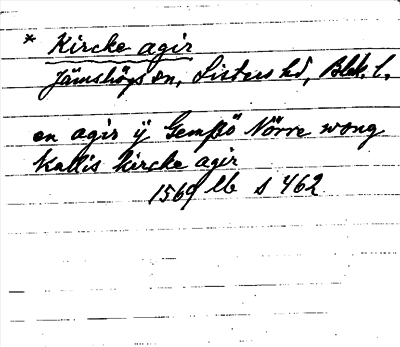 * Kircke agir
Jämshögs sn, Listers hd, Blek. l.
en agir ij Gemßö Nörre wong
kallis kircke agir
1569 lb s 462